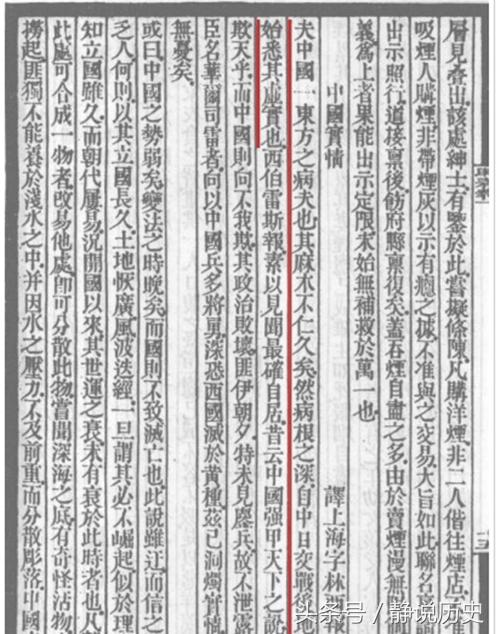 層見疊出該處紳士有鑒於此嘗擬條陳凡購洋煙非二人偕往煙店不准
吸煙人購煙非帶煙灰以示有癮之據不准與之交易大旨如此聯名喜
出示照行道接稟後飭府縣稟復矣蓋吞煙自盡之多由於賣煙漫無
義爲上者果能出示定限未始無補救於萬一也
中國實情
譯上海字林西報
夫中國一東方之病夫也其麻木不仁久矣然病根之深自中日交戰後地
始悉其虛實也西伯雷斯報素以見聞最確自居昔云中國强甲天下之說
欺天乎而中國則向不我欺其政治敗壞匪伊朝夕特未見鏖兵故不泄露
臣名華爾司雷者向以中國兵多將勇深恐西國滅於黃種茲已洞燭實情
無憂矣
或曰中國之勢弱矣變法之時晚矣而國則不致滅亡也此說雖迂而信之
乏人何則以其立國長久土地恢廣風波迭經一旦謂其必不崛起似於理
知立國雖久而朝代屢易況開國以來其世運之衰未有衰於此時者也凡
此處可合成一物者改易他處卽可分散此物嘗聞深海之底有奇怪活物
撈起匪獨不能養於淺水之中并因水之壓力不及前重而分散彫落中國
头条号/静说历史